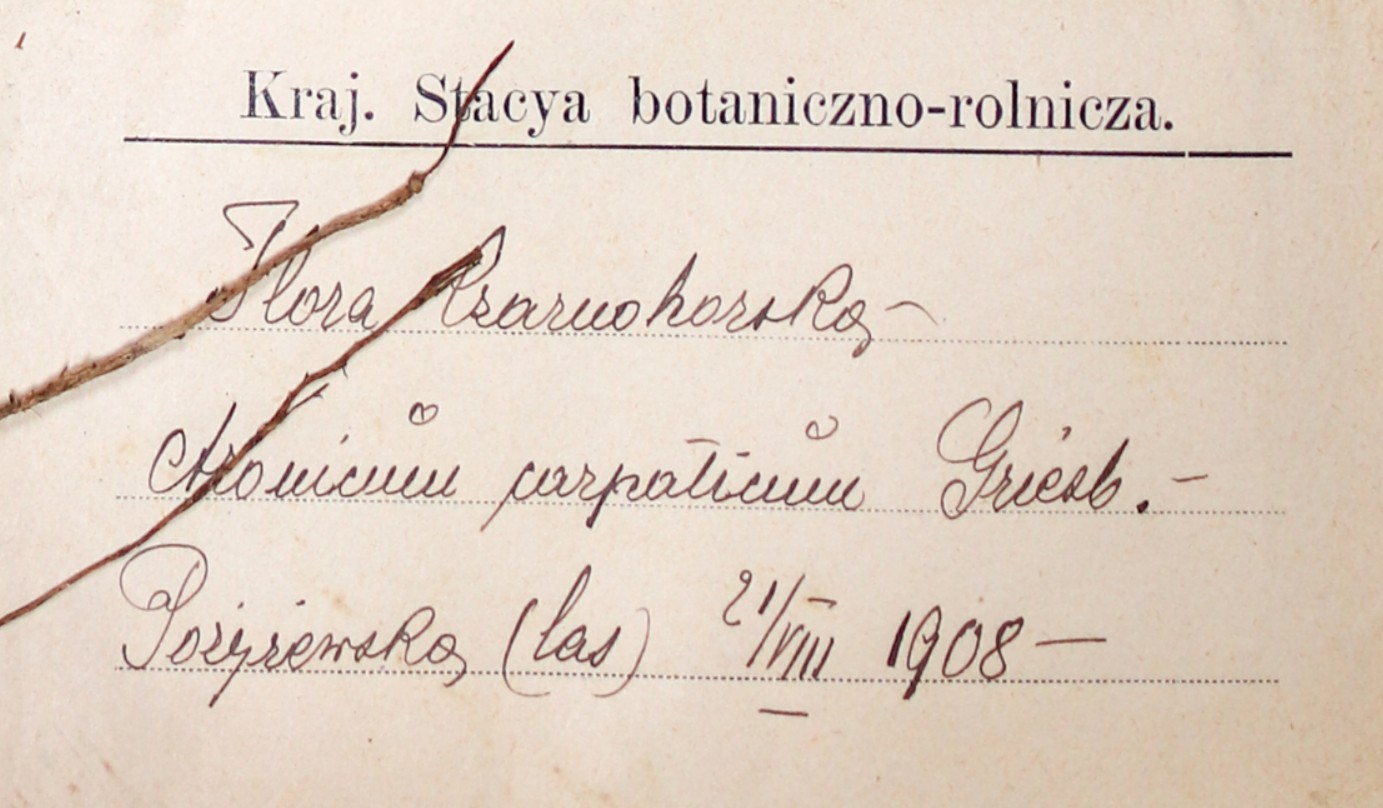 Kraj. Stacya botaniczno-rolnicza.
Flora Czarnohorska
Aronicum carpaticum Griesb. -
Pożyżewska (las) 21/VIII 1908 —